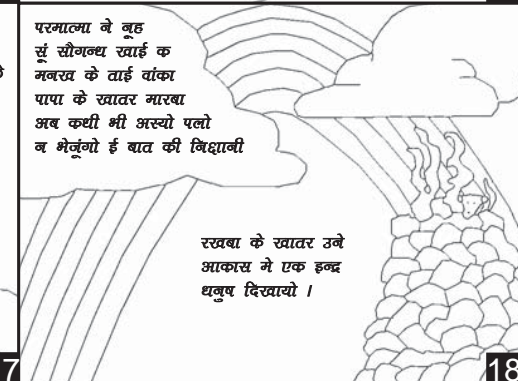 परमात्मा ने नूह
सूं सौगन्ध खाई क
मनख के ताई वांका
पापा के खातर मारबा
अब कधी भी अस्यो पलो
न भेजूंगो ई बात की निशानी
रखबा के खातर उने
आकास मे एक इन्द्र
धनुष दिखायो ।
7
18